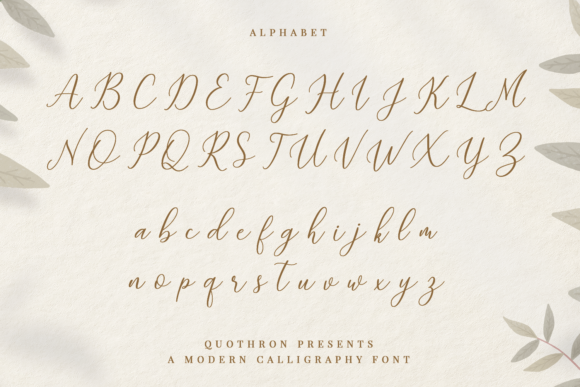 ALPHABET
A B C D E F G H I J K L M
N O P Q R S T U V W X Y Z
a b c d e f g h i j k l m
n o p q r s t u v w x y z
QUOTHRON PRESENTS
A MODERN CALLIGRAPHY FONT